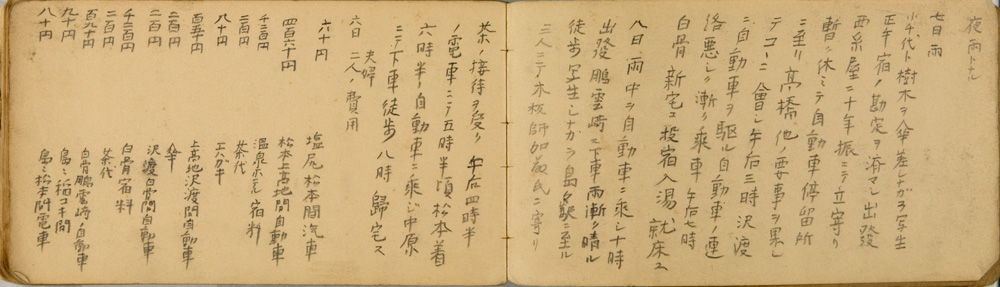 夜雨トナル
七日 雨
小千代ト樹木ヲ傘差シナガラ写生
正午宿ノ勘定ヲ済マシ出発
西糸屋ニ十年振ニテ立寄リ
暫ク休ミテ自動車停留所
ニ至リ高橋、他ノ要事ヲ果シ
テコヽニ會シ午后三時沢渡
ニ自動車ヲ駆ル自動車ノ連
洛悪シク漸ク乗車午后七時
白骨 新宅ニ投宿入湯、就床ス
八日、雨中ヲ自動車ニ乗シ十時
出発鵬雲崎ニ下車雨漸ク晴ル
徒歩写生シナガラ島々駅ニ至ル
三人ニテ木板師加藤氏ニ寄リ
茶ノ接待ヲ受ク 午后四時半
ノ電車ニテ五時半頃松本着
六時半ノ自動車ニ乗シ中原
ニテ下車徒歩八時 歸宅ス
夫婦
六日 二人 費用
六十円 塩尻松本間汽車
四百六十円 松本上高地間自動車
千二百円 温泉ホテル宿料
二百円 茶代
八十円 エハガキ
百五十円 上高地沢渡間自動車
二百円 傘
二百円 沢渡白骨間自動車
千二百円 白骨宿料
二百円 茶代
百九十円 白骨鵬雲崎ノ自動車
九十円 島々稲コキ間
八十円 島々松本間電車